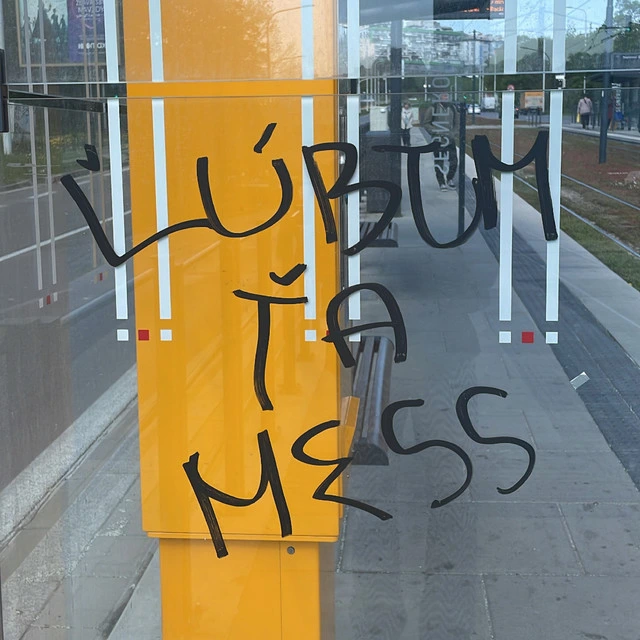 ĽÚBUM
ŤA
MESS